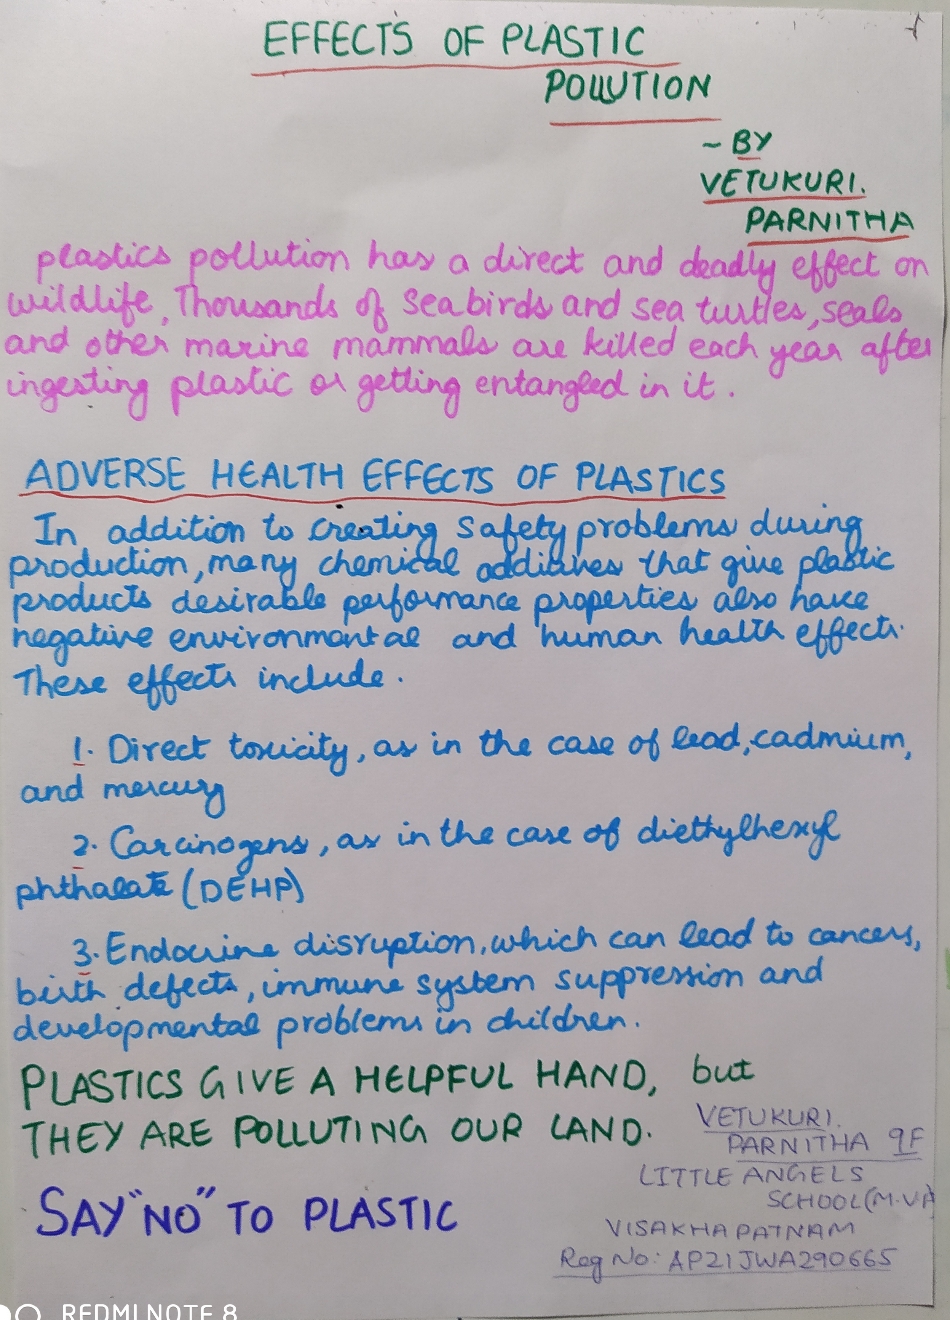 EFFECTS OF PLASTIC
POLLUTION
~ BY
VETUKURI.
PARNITHA
plastics pollution has a direct and deadly effect on
wildlife. Thousands of seabirds and sea turtles, seals
and other marine mammals are killed each year after
ingesting plastic or getting entangled in it.
ADVERSE HEALTH EFFECTS OF PLASTICS
In addition to creating safety problems during
production, many chemical addiaives that give plastic
products desirable performance properties also have
negative environmental and human health effects.
These effects include.
1. Direct toxicity, as in the case of lead, cadmium,
and mercury
2. Carcinogens, as in the case of diethylhexyl
phthalate (DEHP)
3. Endocrine disruption, which can lead to cancers,
birth defects, immune system suppression and
developmental problems in children.
PLASTICS GIVE A HELPFUL HAND, but
THEY ARE POLLUTING OUR LAND.
SAY "NO" TO PLASTIC
VETUKURI.
PARNITHA 9F
LITTLE ANGELS
SCHOOL (M.V.P)
VISAKHAPATNAM
Reg No: AP21JWA290665
REDMI NOTE 8